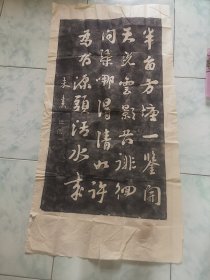 半畝方塘一鑒開
天光雲影共徘徊
問渠哪得清如許
為有源頭活水來
朱熹